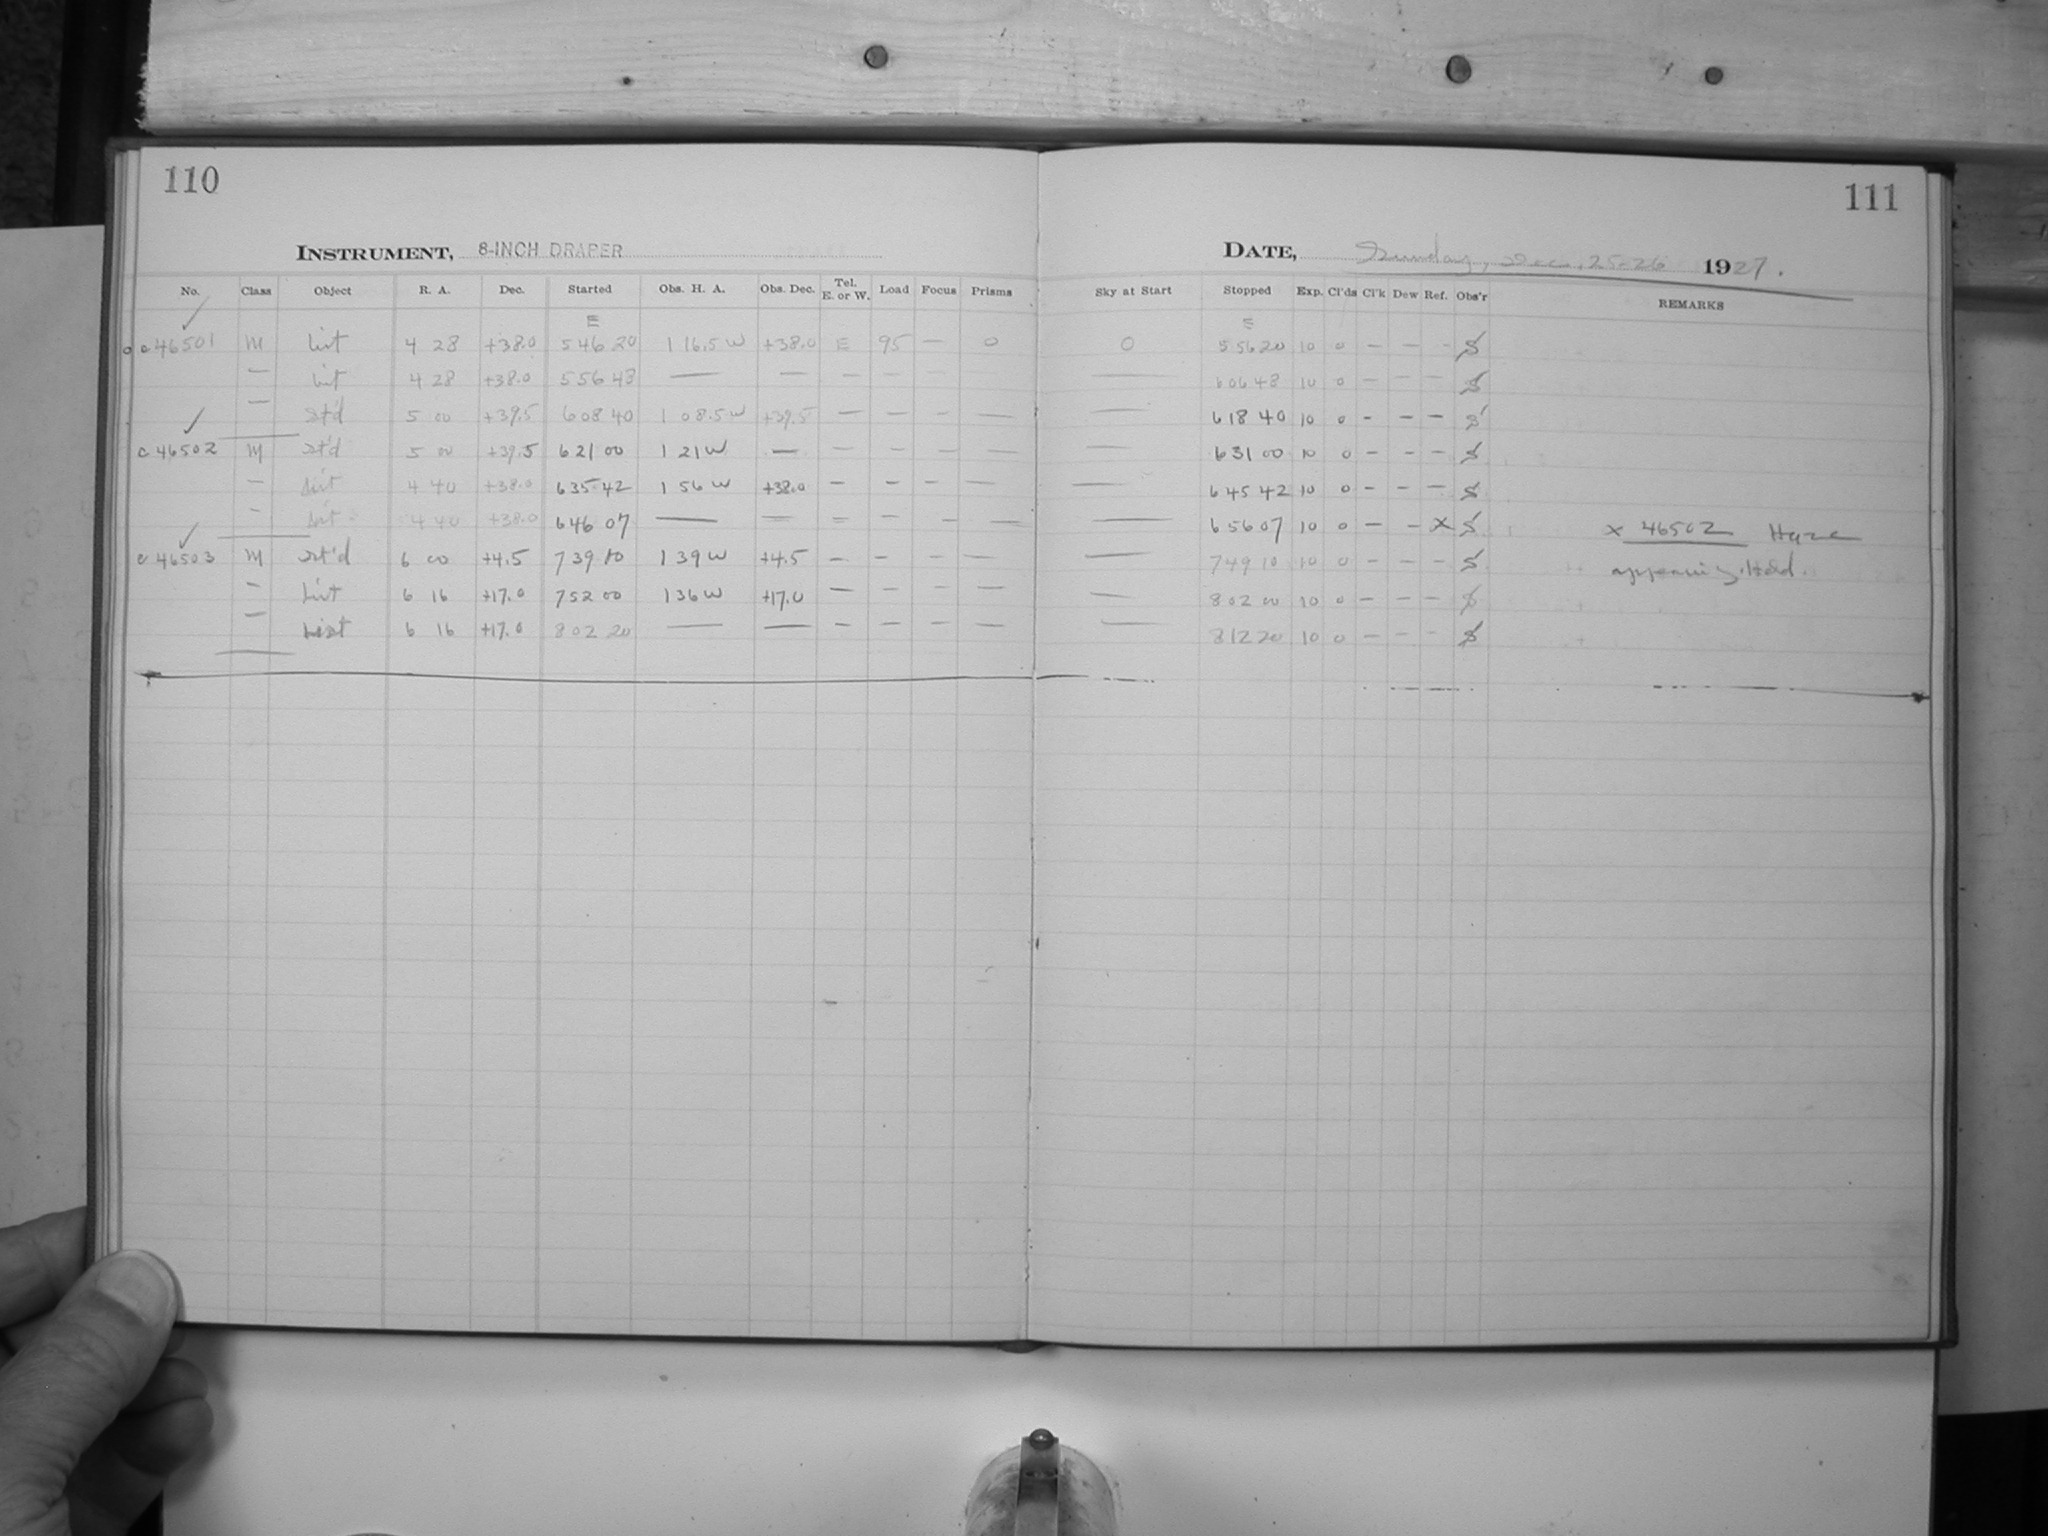 110
111
INSTRUMENT, 8-INCH DRAPER
DATE, Sunday, Dec. 25-26 1927.
No. Class Object R. A. Dec. Started Obs. H. A. Obs. Dec. Tel. E. or W. Load Focus Prisms Sky at Start Stopped Exp. Cl'ds Cl'k Dew Ref. Obs'r REMARKS
E E
c 46501 M List 4 28 +38.0 5 46 20 1 16.5 W +38.0 E 95 — 0 0 5 56 20 10 0 — — - S
— List 4 28 +38.0 5 56 48 — — — — — — — 6 06 48 10 0 — — — S
— St'd 5 00 +39.5 6 08 40 1 08.5 W +39.5 — — — — — 6 18 40 10 0 — — — S
c 46502 M St'd 5 00 +39.5 6 21 00 1 21 W — — — — — — 6 31 00 10 0 — — — S
— List 4 40 +38.0 6 35 42 1 56 W +38.0 — — — — — 6 45 42 10 0 — — — S
— List 4 40 +38.0 6 46 07 — — — — — — — 6 56 07 10 0 — — x S x 46502 Haze
c 46503 M St'd 6 00 +4.5 7 39 10 1 39 W +4.5 — — — — — 7 49 10 10 0 — — — S
— List 6 16 +17.0 7 52 00 1 36 W +17.0 — — — — — 8 02 00 10 0 — — — S
— List 6 16 +17.0 8 02 20 — — — — — — — 8 12 20 10 0 — — - S